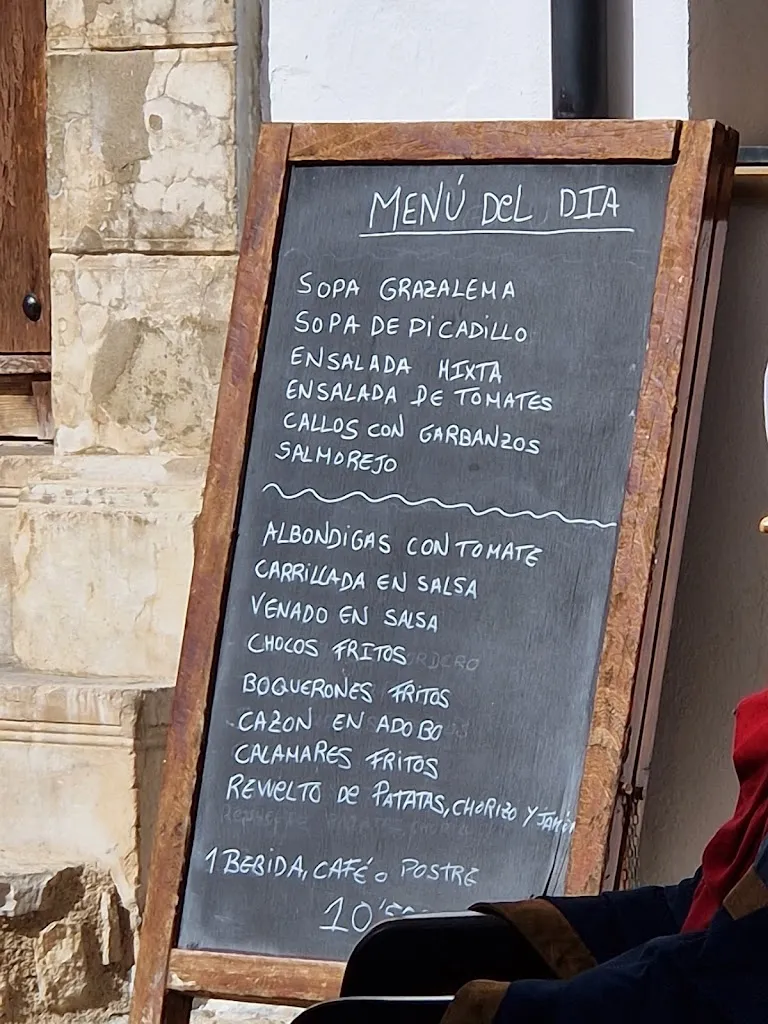 MENÚ DEL DIA
SOPA GRAZALEMA
SOPA DE PICADILLO
ENSALADA MIXTA
ENSALADA DE TOMATES
CALLOS CON GARBANZOS
SALMOREJO
ALBONDIGAS CON TOMATE
CARRILLADA EN SALSA
VENADO EN SALSA
CHOCOS FRITOS
BOQUERONES FRITOS
CAZON EN ADOBO
CALAMARES FRITOS
REVUELTO DE PATATAS, CHORIZO Y JAMÓN
1 BEBIDA, CAFÉ o POSTRE
10'50